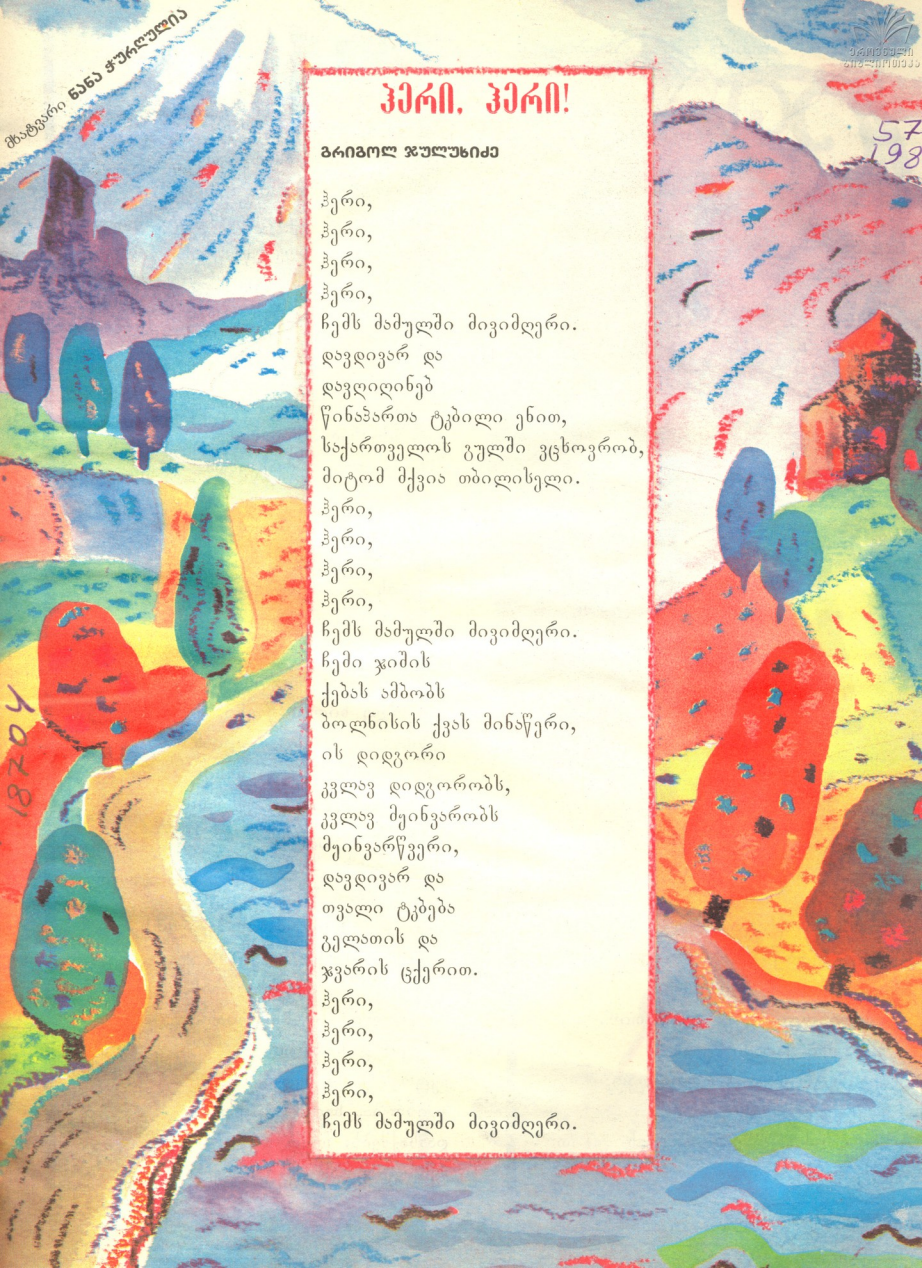 მხატვარი ნანა ჭურღულია
ეროვნული
ბიბლიოთეკა
57
198
ჰერი, ჰერი!
გრიგოლ ჯულუხიძე
ჰერი,
ჰერი,
ჰერი,
ჰერი,
ჩემს მამულში მივიმღერი.
დავდივარ და
დავღიღინებ
წინაპართა ტკბილი ენით,
საქართველოს გულში ვცხოვრობ,
მიტომ მქვია თბილისელი.
ჰერი,
ჰერი,
ჰერი,
ჰერი,
ჩემს მამულში მივიმღერი.
ჩემი ჯიშის
ქებას ამბობს
ბოლნისის ქვას მინაწერი,
ის დიდგორი
კვლავ დიდგორობს,
კვლავ მყინვარობს
მყინვარწვერი,
დავდივარ და
თვალი ტკბება
გელათის და
ჯვარის ცქერით.
ჰერი,
ჰერი,
ჰერი,
ჰერი,
ჩემს მამულში მივიმღერი.
18704